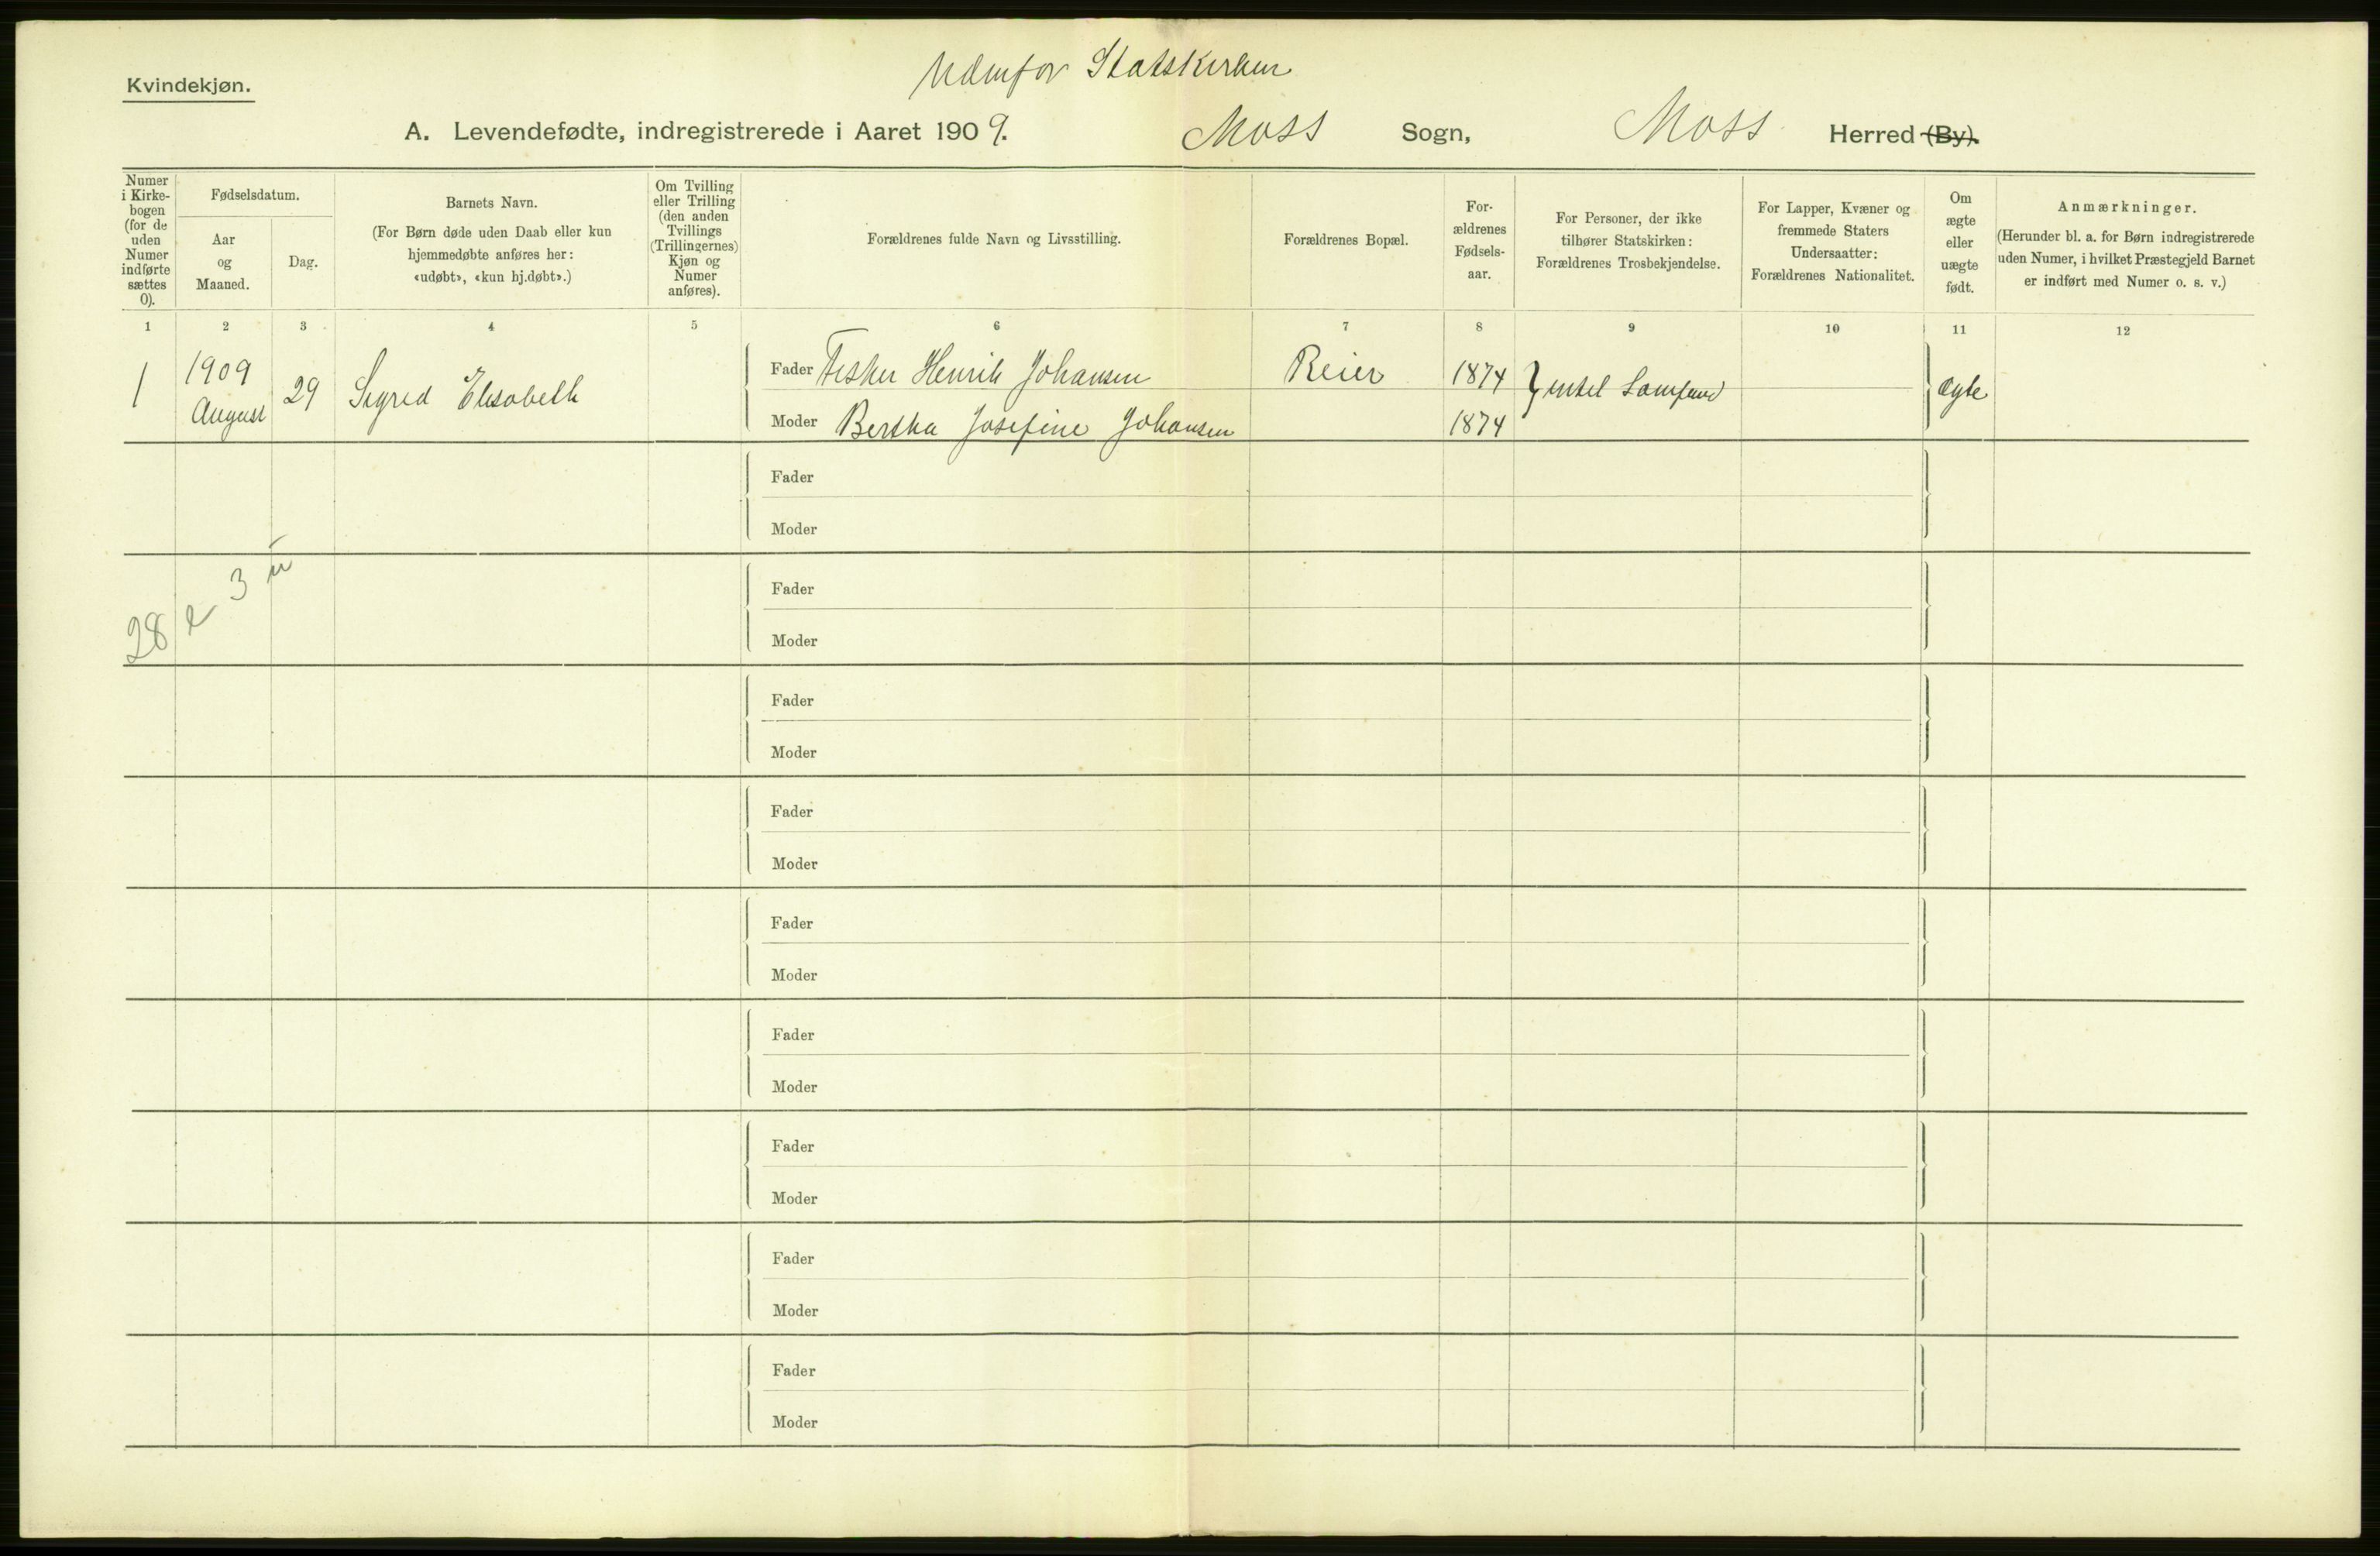 Udenfor Statskirken
Kvindekjøn.
A. Levendefødte, indregistrerede i Aaret 1909. Moss Sogn, Moss Herred (By).
Numer i Kirke-bogen (for de uden Numer indførte sættes 0).
Fødselsdatum.
Aar og Maaned.
Dag.
Barnets Navn.
(For Børn døde uden Daab eller kun
hjemmedøbte anføres her:
«udøbt», «kun hj.døbt».)
Om Tvilling
eller Trilling
(den anden
Tvillings
(Trillingernes)
Kjøn og
Numer
anføres).
Forældrenes fulde Navn og Livsstilling.
Forældrenes Bopæl.
For-
ældrenes
Fødsels-
aar.
For Personer, der ikke
tilhører Statskirken:
Forældrenes Trosbekjendelse.
For Lapper, Kvæner og
fremmede Staters
Undersaatter:
Forældrenes Nationalitet.
Om
ægte
eller
uægte
født.
Anmærkninger.
(Herunder bl. a. for Børn indregistrerede
uden Numer, i hvilket Præstegjeld Barnet
er indført med Numer o. s. v.)
1 2 3 4 5 6 7 8 9 10 11 12
1 1909 August 29 Sigrid Elisabeth
Fader Fisker Henrik Johansen Reier 1874 intet Samfund ægte
Moder Bertha Josefine Johansen 1874
Fader
Moder
28 3
Fader
Moder
Fader
Moder
Fader
Moder
Fader
Moder
Fader
Moder
Fader
Moder
Fader
Moder
Fader
Moder